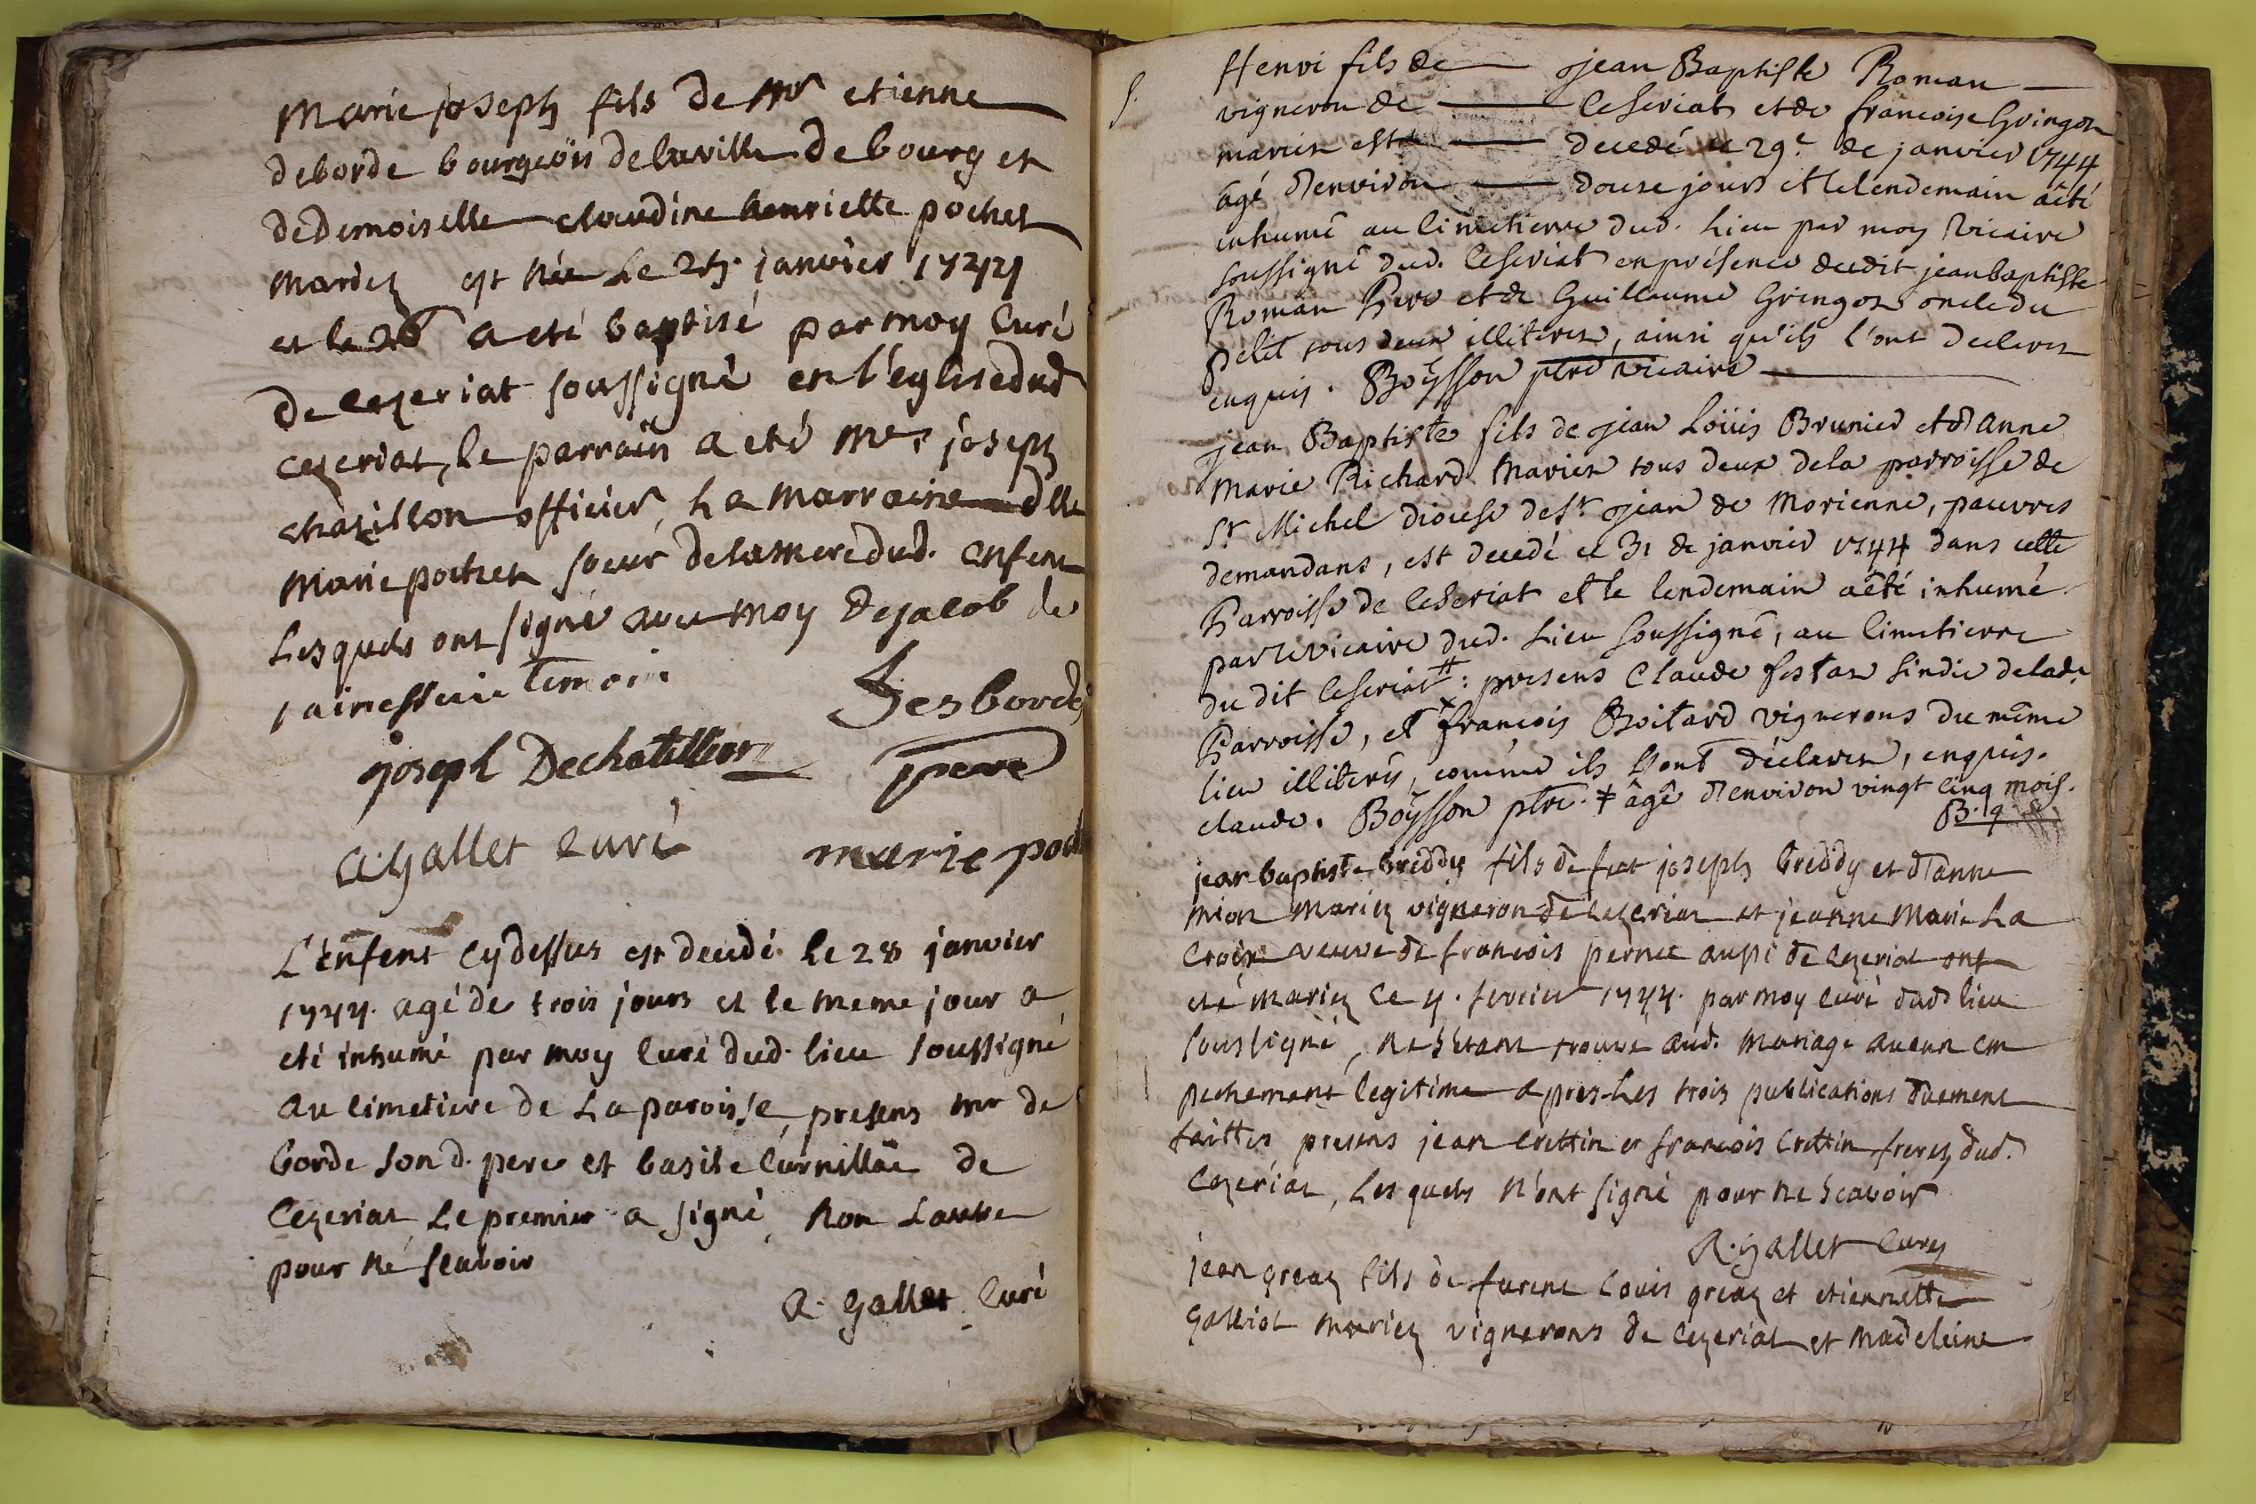 Marie joseph fils de Mr etienne
deborde bourgeois de la ville de bourg et
de Demoiselle claudine henriette pochet
mariez est née Le 25. janvier 1744
et le 26 a eté baptisé par moy Curé
de cezeriat soussigné en l'eglise dud
cezeriat, le parrain a eté Mr joseph
chatillon officier, La marraine dlle
Marie pochet soeur de la mere dud. enfent
Lesquels ont signé avec moy Dejacob de
temoin
Desbordes
joseph Dechatillion
pere
A. Gallet curé
marie poch
L'enfent cy dessus est decedé le 28 janvier
1744. agé de trois jours et le meme jour a
eté inhumé par moy Curé dud. lieu soussigné
au cimetiere de La paroisse, presens mr de
borde son d. pere et basile Curnillon de
Cezeriat Le premier a signé, non L'autre
pour ne scavoir
A. Gallet Curé
Henri fils de jean Baptiste Roman
vigneron de Ceseriat et de francoise Gringoz
mariez est decedé ce 29e de janvier 1744
âgé d'environ douze jours et le lendemain a êté
inhumé au Cimetierre dud. Lieu par moy Vicaire
soussigné dud. Ceseriat en présence dudit jean baptiste
Roman Pere et de Guillaume Gringoz oncle du
petit tous deux illiterez, ainsi qu'ils l'ont declarez
enquis. Boÿsson ptre vicaire
jean Baptiste fils de jean Loüis Brunier et d'anne
Marie Richard Mariez tous deux de la parroisse de
St Michel diocese de St jean de Morienne, pauvres
demandans, est decedé ce 31 de janvier 1744 dans cette
Parroisse de Ceseriat et le lendemain a êté inhumé
par le vicaire dud. Lieu soussigné, au Cimetierre
du dit Ceseriat ‡: presens Claude sindic de lad.
Parroisse, et francois Boitard vignerons du même
lieu illiterés, comme ils l'ont déclarez, enquis.
claude. Boÿsson ptre. ‡ âgé d'environ vingt Cinq mois.
jean baptiste breddy fils de feu joseph breddy et d'anne
mion mariez vigneron de Cezeriat et jeanne Marie La
Croix veuve de francois pernet aussi de cezeriat ont
eté mariez ce 4. fevrier 1744. par moy curé dud lieu
soussigné, ne s'etant trouvé aud. mariage aucun em
pechement legitime apres Les trois publications duement
faittes, presens jean Crettin et francois Crettin freres dud.
Cezeriat, Lesquels n'ont signé pour ne scavoir
A. Gallet Curé
jean greaz fils de furent Louis greaz et etiennette
Galliot mariez vignerons de Cezeriat et madeleine